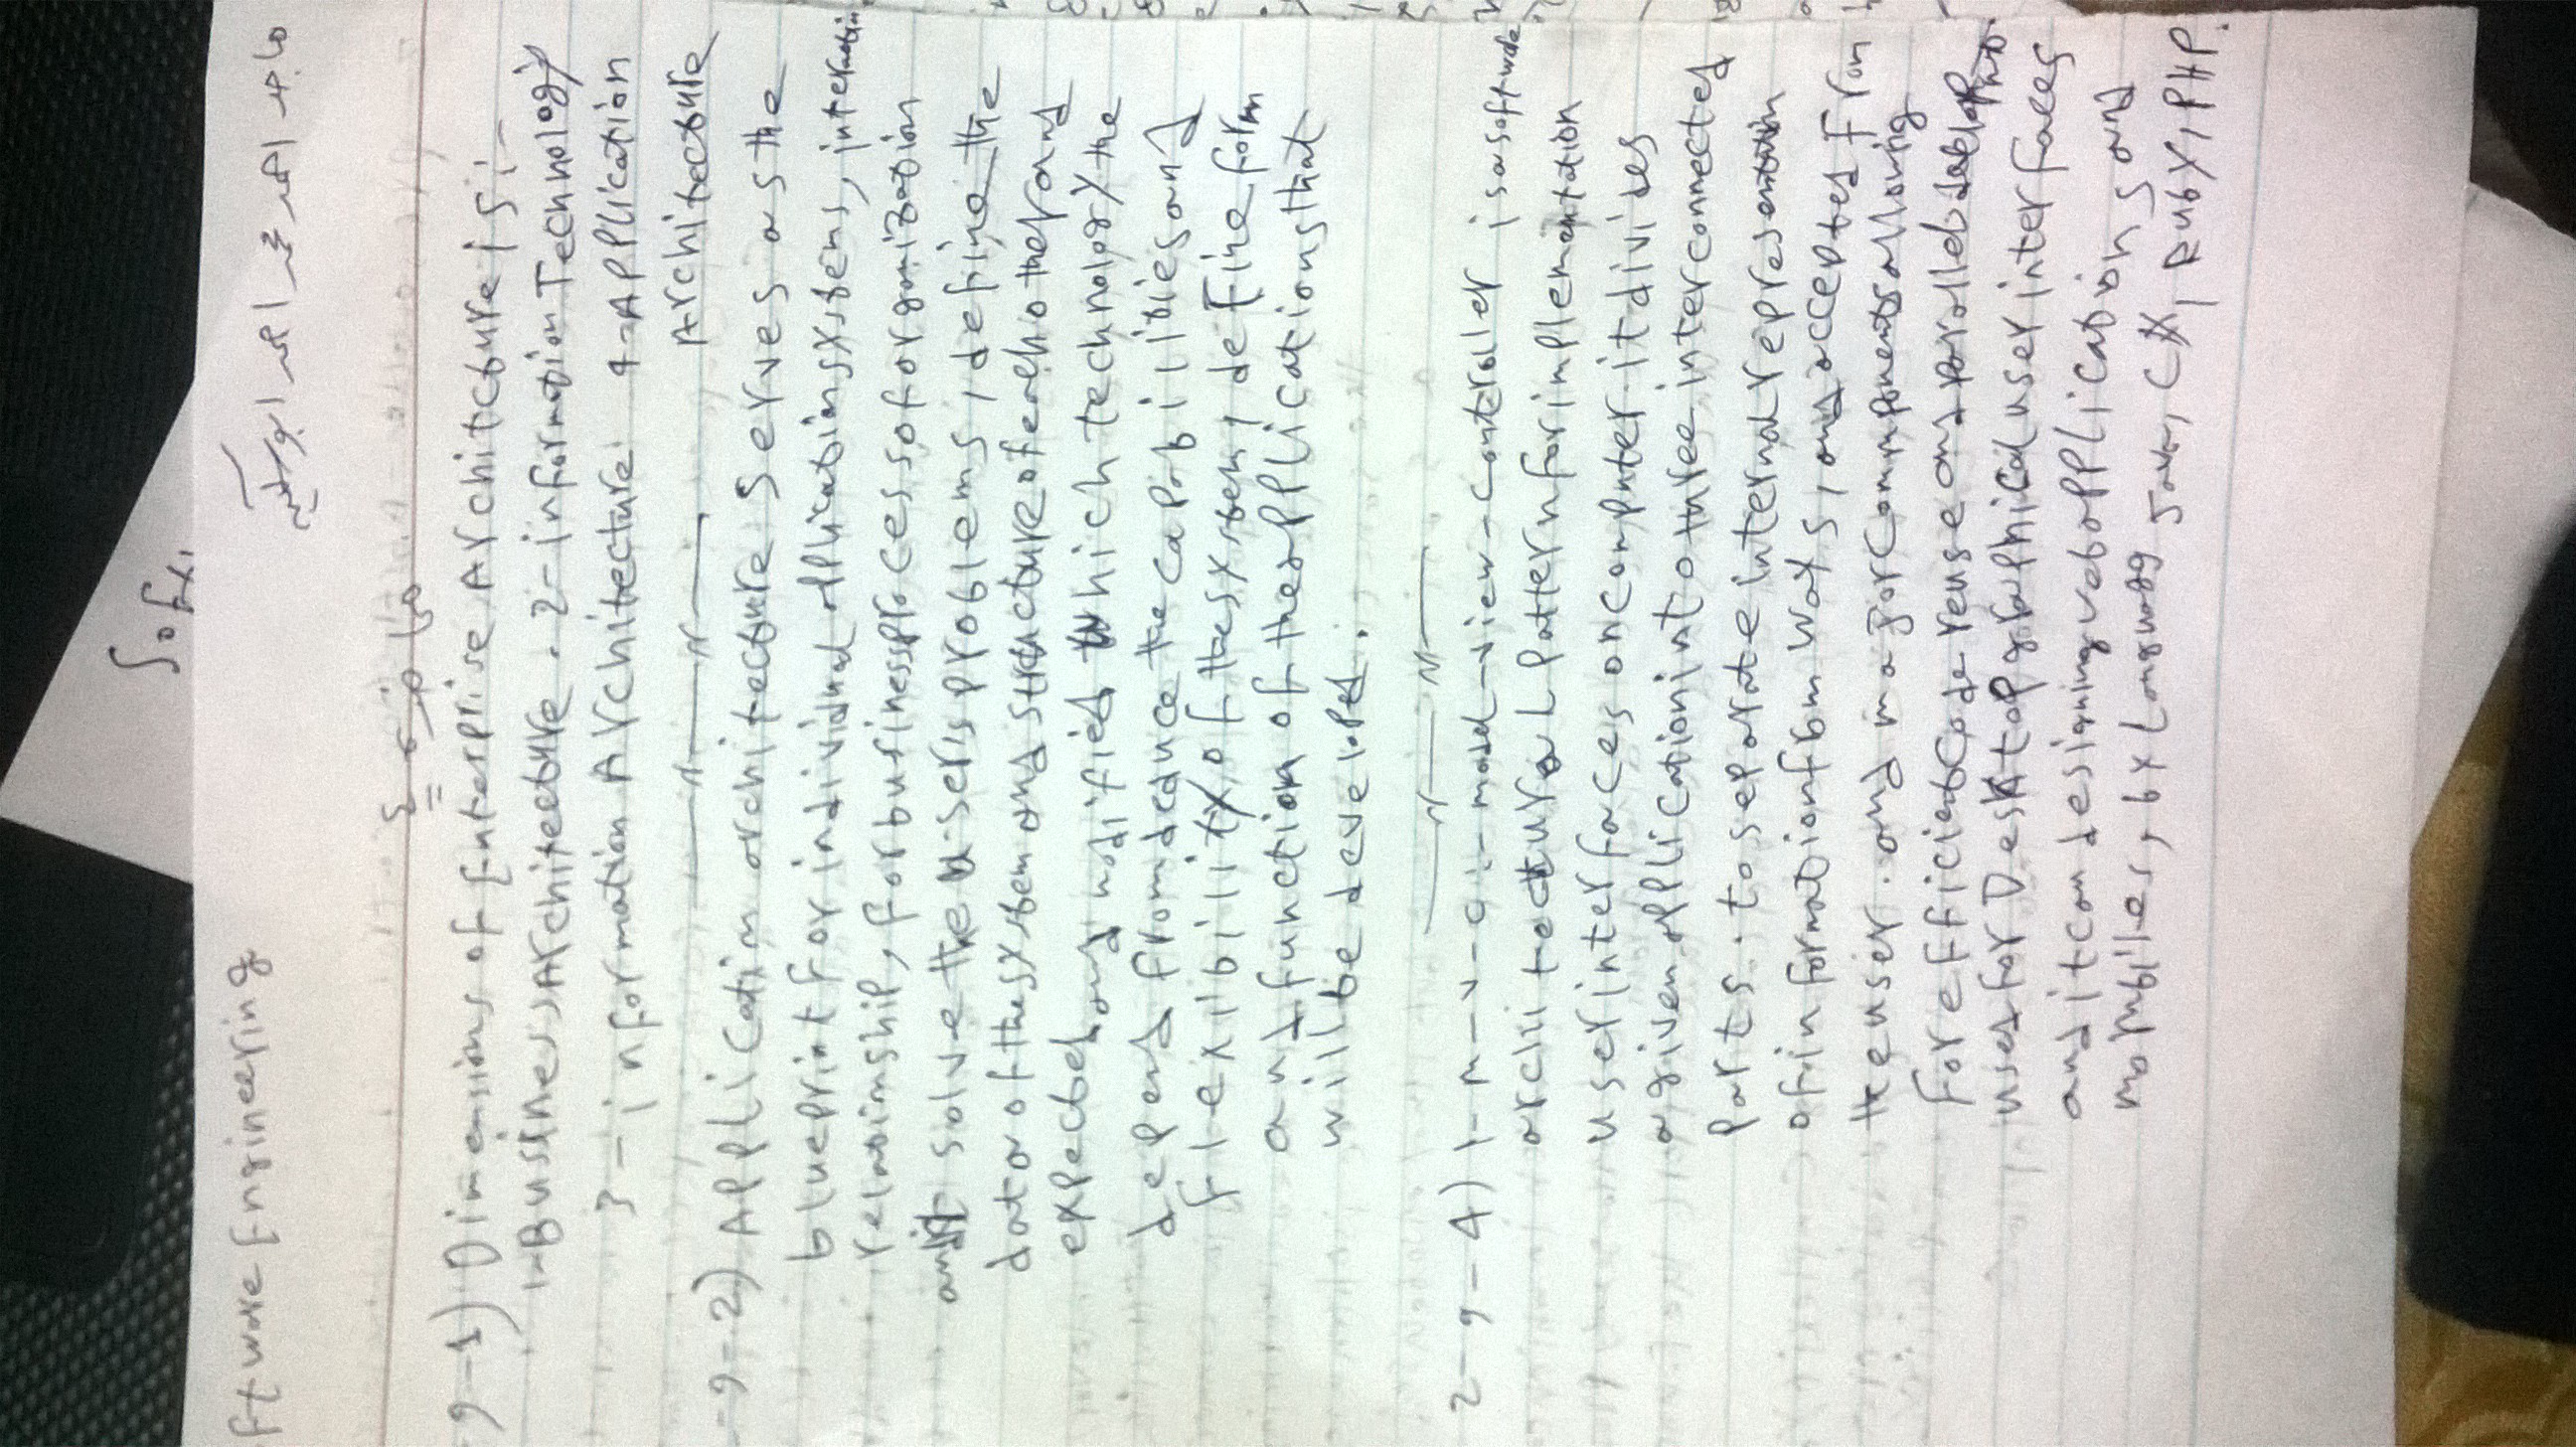 Soft.
ftware Engineering
ماجد احمد محمد احمد ابو
محاضرة ٤
9-1) Dimensions of Enterprise Architcture is:-
1-Business Architecture . 2-information Technology
3-information Architecture 4-Application
Architecture
-9-2) Application architecture Serves as the
blueprint for individual application systems, interaction
relationship, for business process of organization
and it solve the user's problems, define the
data of the system and structure of each other and
expected and modified which technology the
depend from deduce the capabilities and
flexibility of the system, define form
and function of the applications that
will be developed.
2-9-4) 1-M-V-C:- model-view-controller is a software
architectural pattern for implementation
user interfaces on computer. it divides
a given application into three interconnected
parts. to separate internal representation
of information from ways, and accepted from
the user. and major Commponents allowing
for efficient code reuse and parallel
used for Desktop graphical user interfaces
and it can designing web applications and
by Language Java, C#, Ruby, PHP.